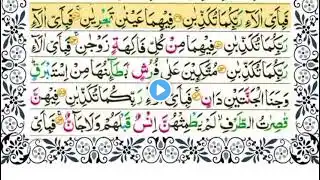 فَبِاَىِّ اٰلَآءِ رَبِّكُمَا تُكَذِّبٰنِ فِيْهِمَا عَيْنٰنِ تَجْرِيٰنِ فَبِاَىِّ اٰلَآءِ
رَبِّكُمَا تُكَذِّبٰنِ فِيْهِمَا مِنْ كُلِّ فَاكِهَةٍ زَوْجٰنِ فَبِاَىِّ اٰلَآءِ
رَبِّكُمَا تُكَذِّبٰنِ مُتَّكِـِٕيْنَ عَلٰى فُرُشٍۭ بَطَآىِٕنُهَا مِنْ اِسْتَبْرَقٍ
وَجَنَا الْجَنَّتَيْنِ دَانٍ فَبِاَىِّ اٰلَآءِ رَبِّكُمَا تُكَذِّبٰنِ فِيْهِنَّ
قٰصِرٰتُ الطَّرْفِ لَمْ يَطْمِثْهُنَّ اِنْسٌ قَبْلَهُمْ وَلَا جَآنٌّ فَبِاَىِّ